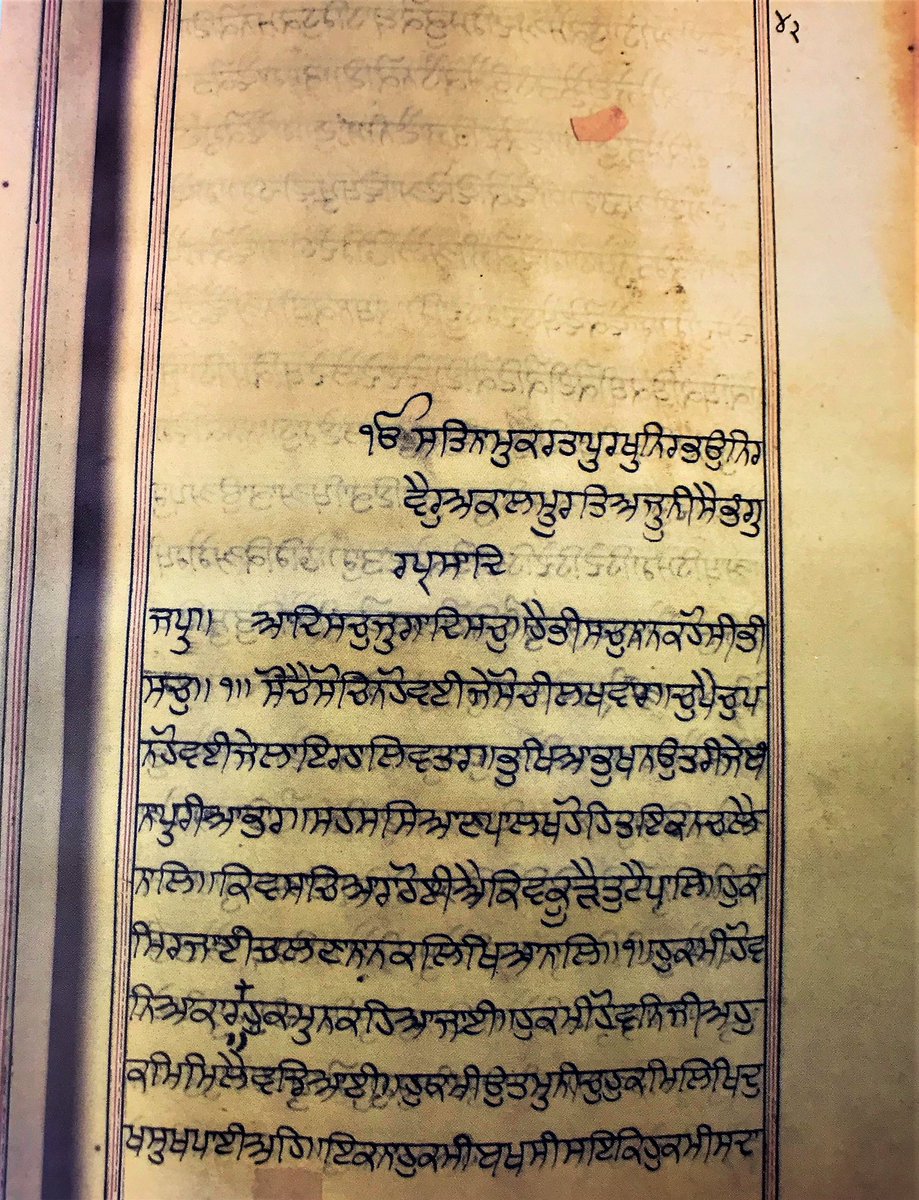 ੪੨
ੴ ਸਤਿਨਾਮੁਕਰਤਾਪੁਰਖੁਨਿਰਭਉਨਿਰ
ਵੈਰੁਅਕਾਲਮੂਰਤਿਅਜੂਨੀਸੈਭੰਗੁ
ਰਪ੍ਰਸਾਦਿ
ਜਪੁ॥ ਆਦਿਸਚੁਜੁਗਾਦਿਸਚੁ॥ਹੈਭੀਸਚੁਨਾਨਕਹੋਸੀਭੀ
ਸਚੁ॥੧॥ ਸੋਚੈਸੋਚਿਨਹੋਵਈਜੇਸੋਚੀਲਖਵਾਰ॥ਚੁਪੈਚੁਪ
ਨਹੋਵਈਜੇਲਾਇਰਹਾਲਿਵਤਾਰ॥ਭੁਖਿਆਭੁਖਨਉਤਰੀਜੇਬੰ
ਨਾਪੁਰੀਆਭਾਰ॥ਸਹਸਸਿਆਣਪਾਲਖਹੋਹਿਤਇਕਨਚਲੈ
ਨਾਲਿ॥ਕਿਵਸਚਿਆਰਾਹੋਈਐਕਿਵਕੂੜੈਤੁਟੈਪਾਲਿ॥ਹੁਕ
ਮਿਰਜਾਈਚਲਣਾਨਾਨਕਲਿਖਿਆਨਾਲਿ॥੧॥ਹੁਕਮੀਹੋਵ
ਨਿਆਕਾਰਹੁਕਮੁਨਕਹਿਆਜਾਈ॥ਹੁਕਮੀਹੋਵਨਿਜੀਅਹੁ
ਕਮਿਮਿਲੈਵਡਿਆਈ॥ਹੁਕਮੀਉਤਮੁਨੀਚੁਹੁਕਮਿਲਿਖਿਦੁ
ਖਸੁਖਪਾਈਅਹਿ॥ਇਕਨਾਹੁਕਮੀਬਖਸੀਸਇਕਿਹੁਕਮੀਸਦਾ